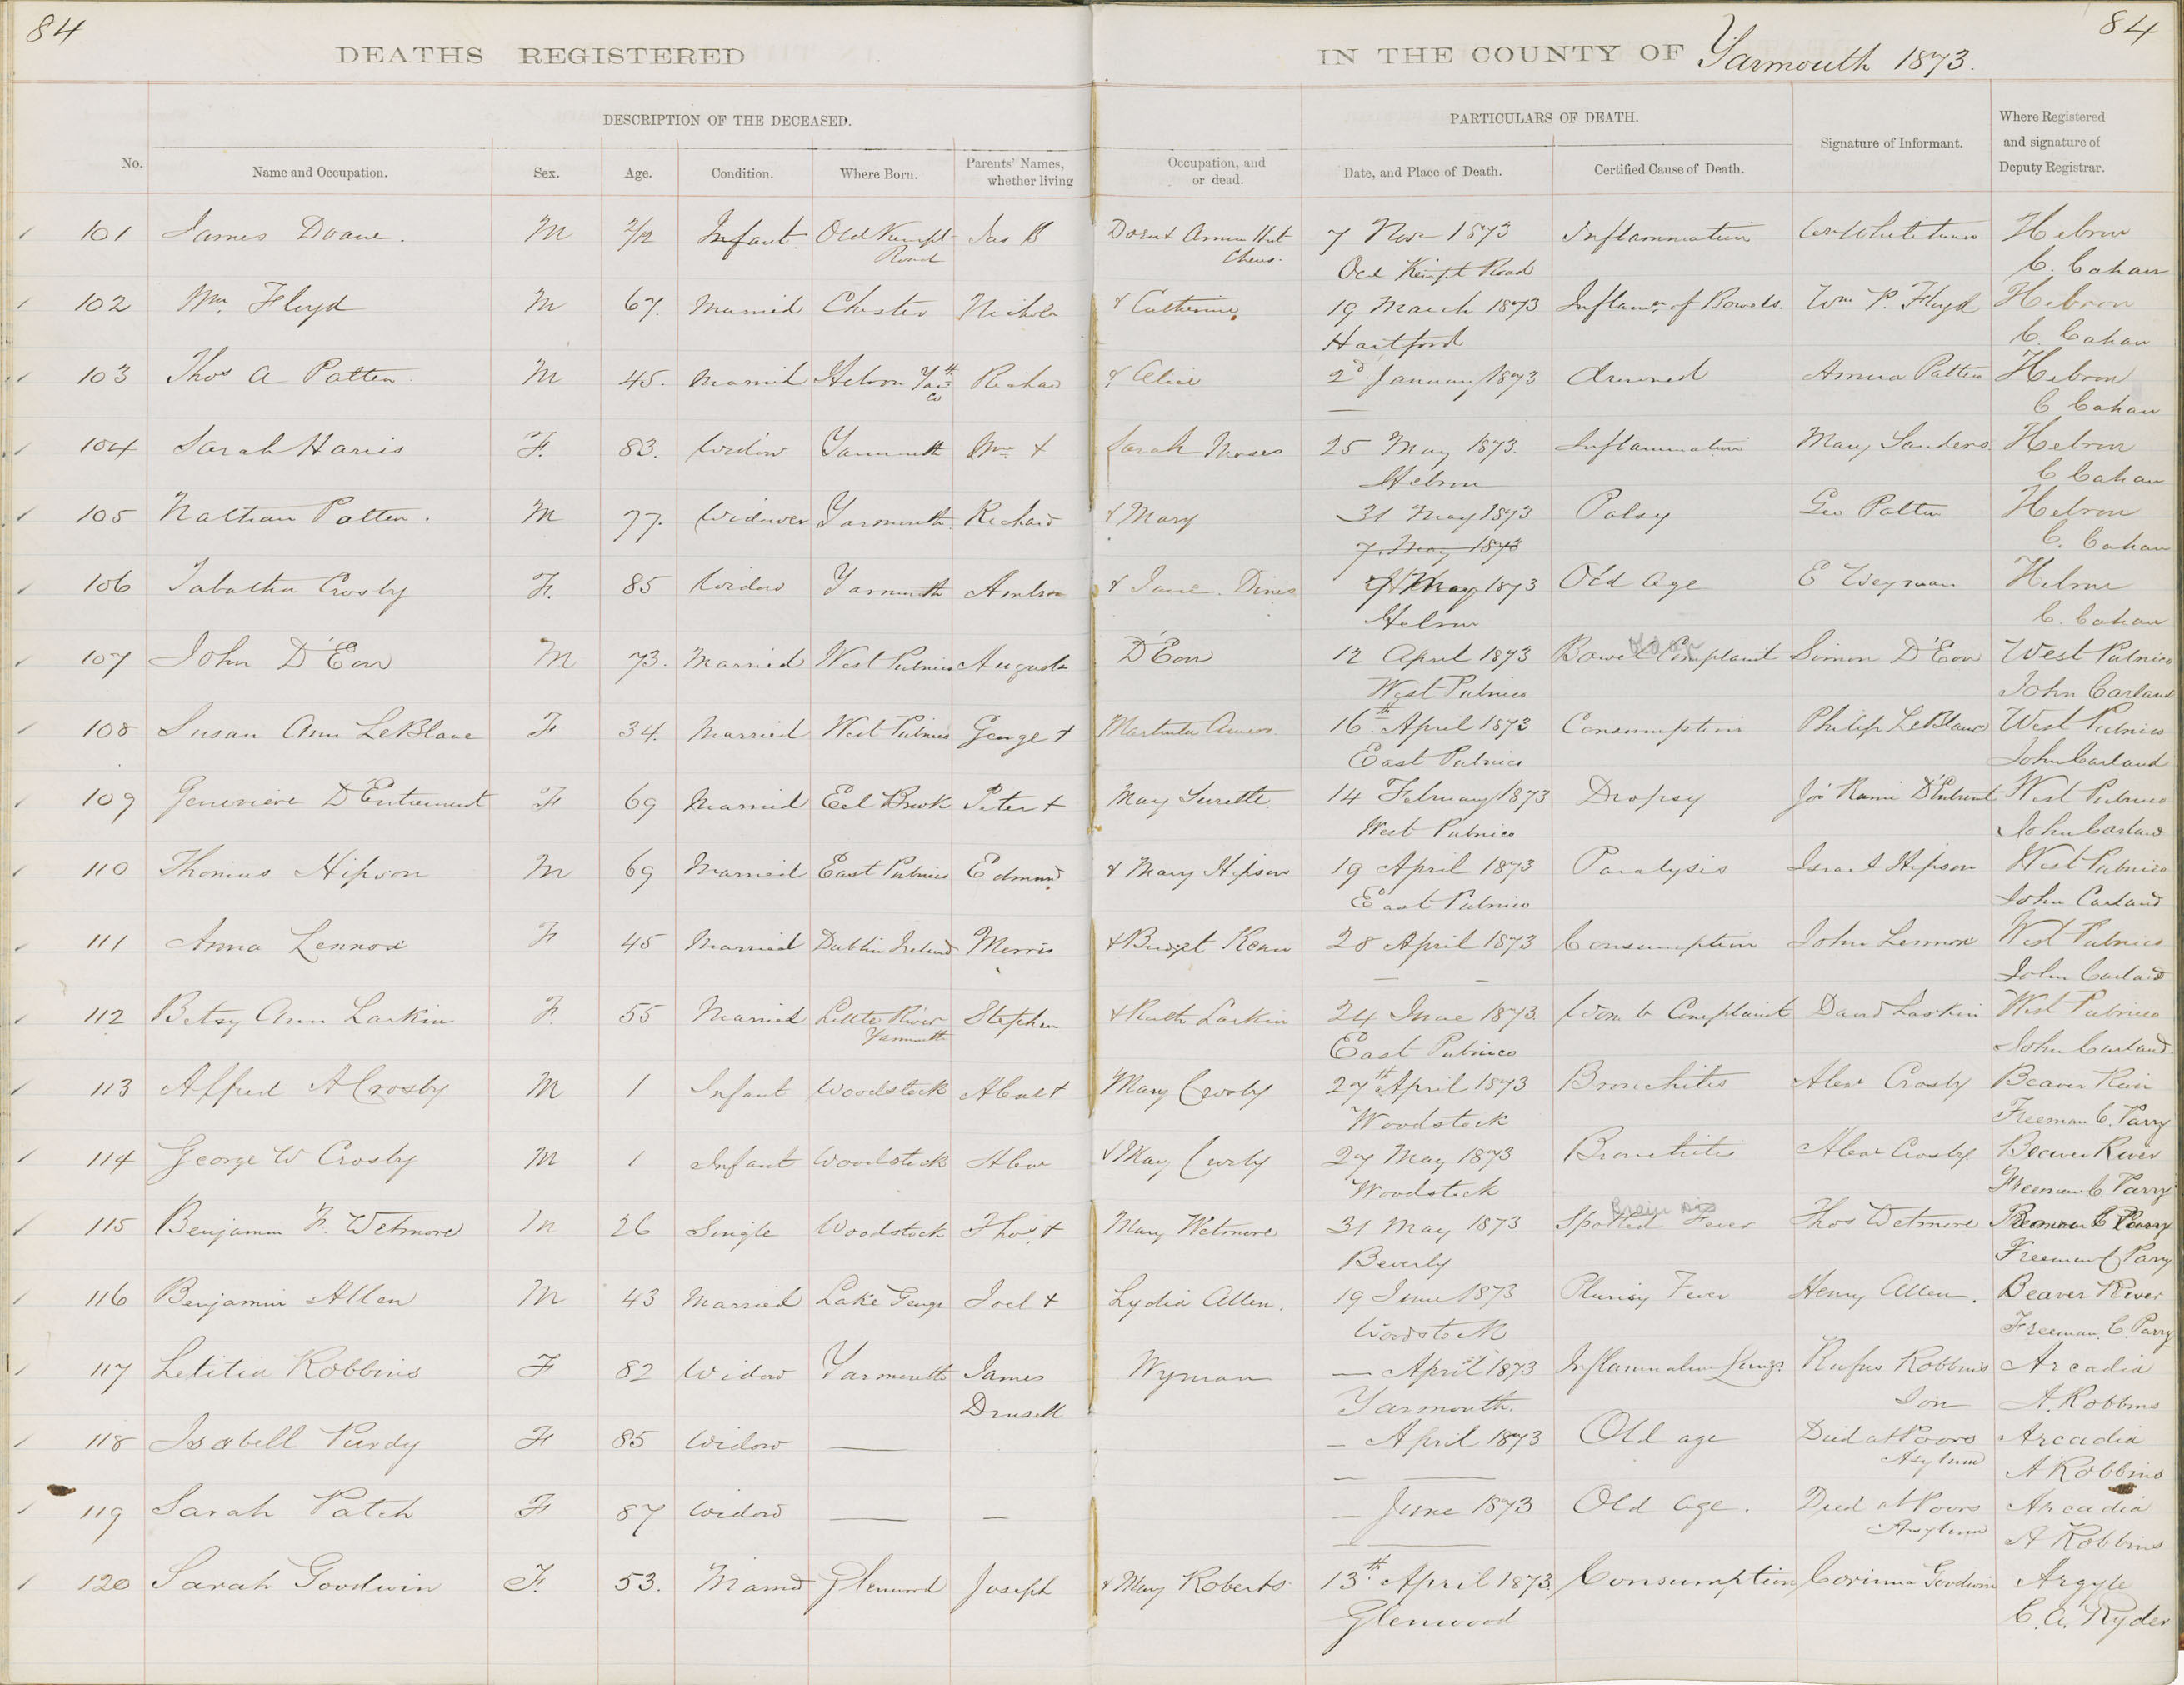 84
84
DEATHS REGISTERED IN THE COUNTY OF Yarmouth 1873.
DESCRIPTION OF THE DECEASED. PARTICULARS OF DEATH.
No. Name and Occupation. Sex. Age. Condition. Where Born. Parents' Names, whether living Occupation, and or dead. Date, and Place of Death. Certified Cause of Death. Signature of Informant. Where Registered and signature of Deputy Registrar.
101 James Doane. M 2/12 Infant Old Kempt Jas B 7 Nov 1873 Inflammation Hebron
Road Old Kempt Road C. Cahan
102 Wm. Floyd M 67. Married Chester Nichola & Catherine 19 March 1873 Inflam. of Bowels. Wm P. Floyd Hebron
Hartford C. Cahan
103 Thos A Patten M 45. Married Hebron Richard & Alice 2d January 1873 drowned Patten Hebron
Co — C Cahan
104 Sarah Harris F. 83. Widow Yarmouth Wm & Sarah Moses 25 May 1873. Inflammation Mary Sanders. Hebron
Hebron C Cahan
105 Nathan Patten. M 77. Widower Yarmouth Richard & Mary 31 May 1873 Palsy Geo Patten Hebron
7. May 1873 C. Cahan
106 Tabatha Crosby F. 85 Widow Yarmouth & Jane May 1873 Old Age E Weyman Hebron
Hebron C. Cahan
107 John D'Eon M 73. Married West Pubnico Augustin D'Eon 12 April 1873 Bowel Complaint Simon D'Eon West Pubnico
West Pubnico John Carland
108 Susan Ann LeBlanc F 34. Married West Pubnico George & 16th April 1873 Consumption Philip LeBlanc West Pubnico
East Pubnico John Carland
109 Genevieve D'Entremont F 69 Married Eel Brook Peter & Mary Surette. 14 February 1873 Dropsy D'Entremont West Pubnico
West Pubnico John Carland
110 Thomas Hipson M 69 Married East Pubnico Edmund & Mary Hipson 19 April 1873 Paralysis Israel Hipson West Pubnico
East Pubnico John Carland
111 Anna Lennox F 45 Married Dublin Ireland Morris & 28 April 1873 Consumption John Lennox West Pubnico
— — John Carland
112 Betsy Ann Larkin F. 55 Married Little River Stephen & Ruth Larkin 24 June 1873. Womb Complaint David Larkin West Pubnico
Yarmouth East Pubnico John Carland
113 Alfred A Crosby M 1 Infant Woodstock & Mary Crosby 27th April 1873 Bronchitis Crosby Beaver River
Woodstock Freeman C. Parry
114 George W Crosby M 1 Infant Woodstock & May Crosby 27 May 1873 Bronchitis Crosby. Beaver River
Woodstock Freeman C. Parry
Brain Dis
115 Benjamin F. Wetmore M 26 Single Woodstock Thos. & Mary Wetmore 31 May 1873 Spotted Fever Thos Wetmore
Beverly Freeman C Parry
116 Benjamin Allen M 43 Married Lake George Joel & Lydia Allen. 19 June 1873 Plurisy Fever Henry Allen. Beaver River
Woodstock Freeman. C. Parry
117 Letitia Robbins F 82 Widow Yarmouth James Wyman — April 1873 Inflammation Lungs. Rufus Robbins Arcadia
Yarmouth. Son A. Robbins
118 Isabell Purdy F 85 Widow — — April 1873 Old age Died at Poors Arcadia
— — Asylum A Robbins
119 Sarah Patch F 87 Widow — — — June 1873 Old Age. Died at Poors Arcadia
— Asylum A Robbins
120 Sarah Goodwin F. 53. Married Glenwood Joseph & Mary Roberts 13th April 1873. Consumption Corinna Goodwin Argyle
Glenwood C. A. Ryder